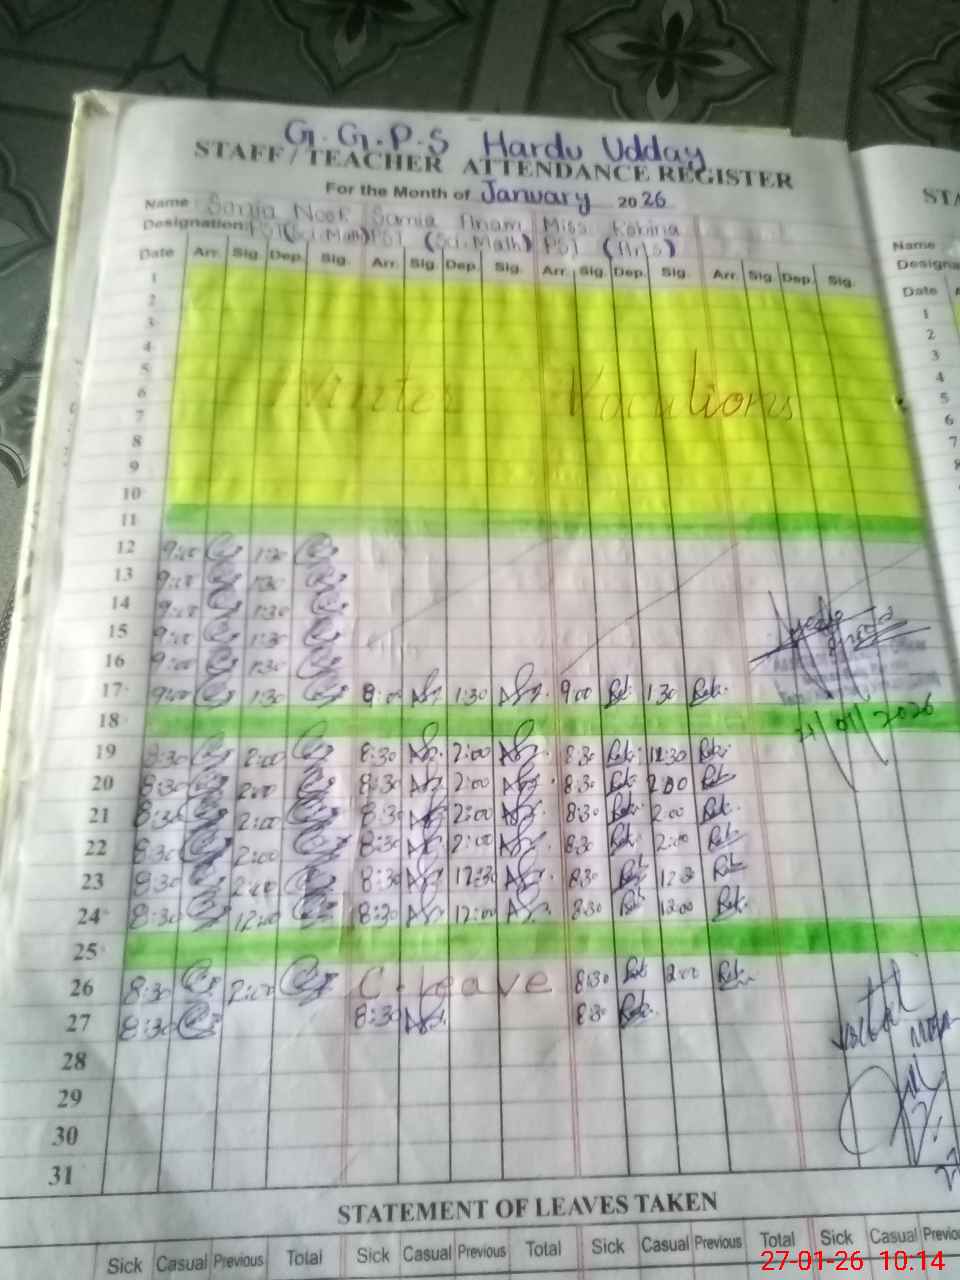 G.G.P.S Hardu Udday
STAFF/TEACHER ATTENDANCE REGISTER
For the Month of January 2026
Name Sonia Noor Samia Anam Miss Robina
Designation: PST(Sci.Math) PST (Sci.Math) PST (Arts)
Date Arr. Sig. Dep. Sig. Arr. Sig. Dep. Sig. Arr. Sig. Dep. Sig. Arr. Sig. Dep. Sig.
1
2
3
4
5
6 Winter Vacations
7
8
9
10
11
12 9:00 1:30
13 9:00 1:30
14 9:00 1:30
15 9:00 1:30
16 9:00 1:30
17 9:00 1:30 9:00 1:30 9:00 1:30
18
21/01/2026
19 8:30 2:00 8:30 2:00 8:30 12:30
20 8:30 2:00 8:30 2:00 8:30 2:00
21 8:30 2:00 8:30 2:00 8:30 2:00
22 8:30 2:00 8:30 2:00 8:30 2:00
23 8:30 8:30 12:30 8:30 12:30
24 8:30 12:00 8:30 12:00 8:30 12:00
25
26 8:30 2:00 C.leave 8:30 2:00
27 8:30 8:30 8:30
28
29
30
31
STATEMENT OF LEAVES TAKEN
Sick Casual Previous Total Sick Casual Previous Total Sick Casual Previous Total Sick Casual Previo
STA
Name
Designa
Date A
1
2
3
4
5
6
7
27-01-26 10:14